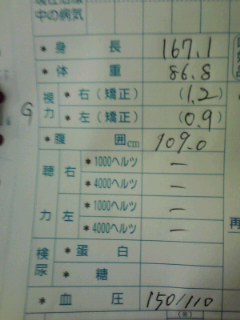 中の病気
* 身 長 167.1
* 体 重 86.8
視力 * 右(矯正) (1.2)
* 左(矯正) (0.9)
* 腹 囲cm 109.0
聴力 右 * 1000ヘルツ —
* 4000ヘルツ —
左 * 1000ヘルツ —
* 4000ヘルツ —
検尿 * 蛋 白
* 糖
* 血 圧 150/110
再